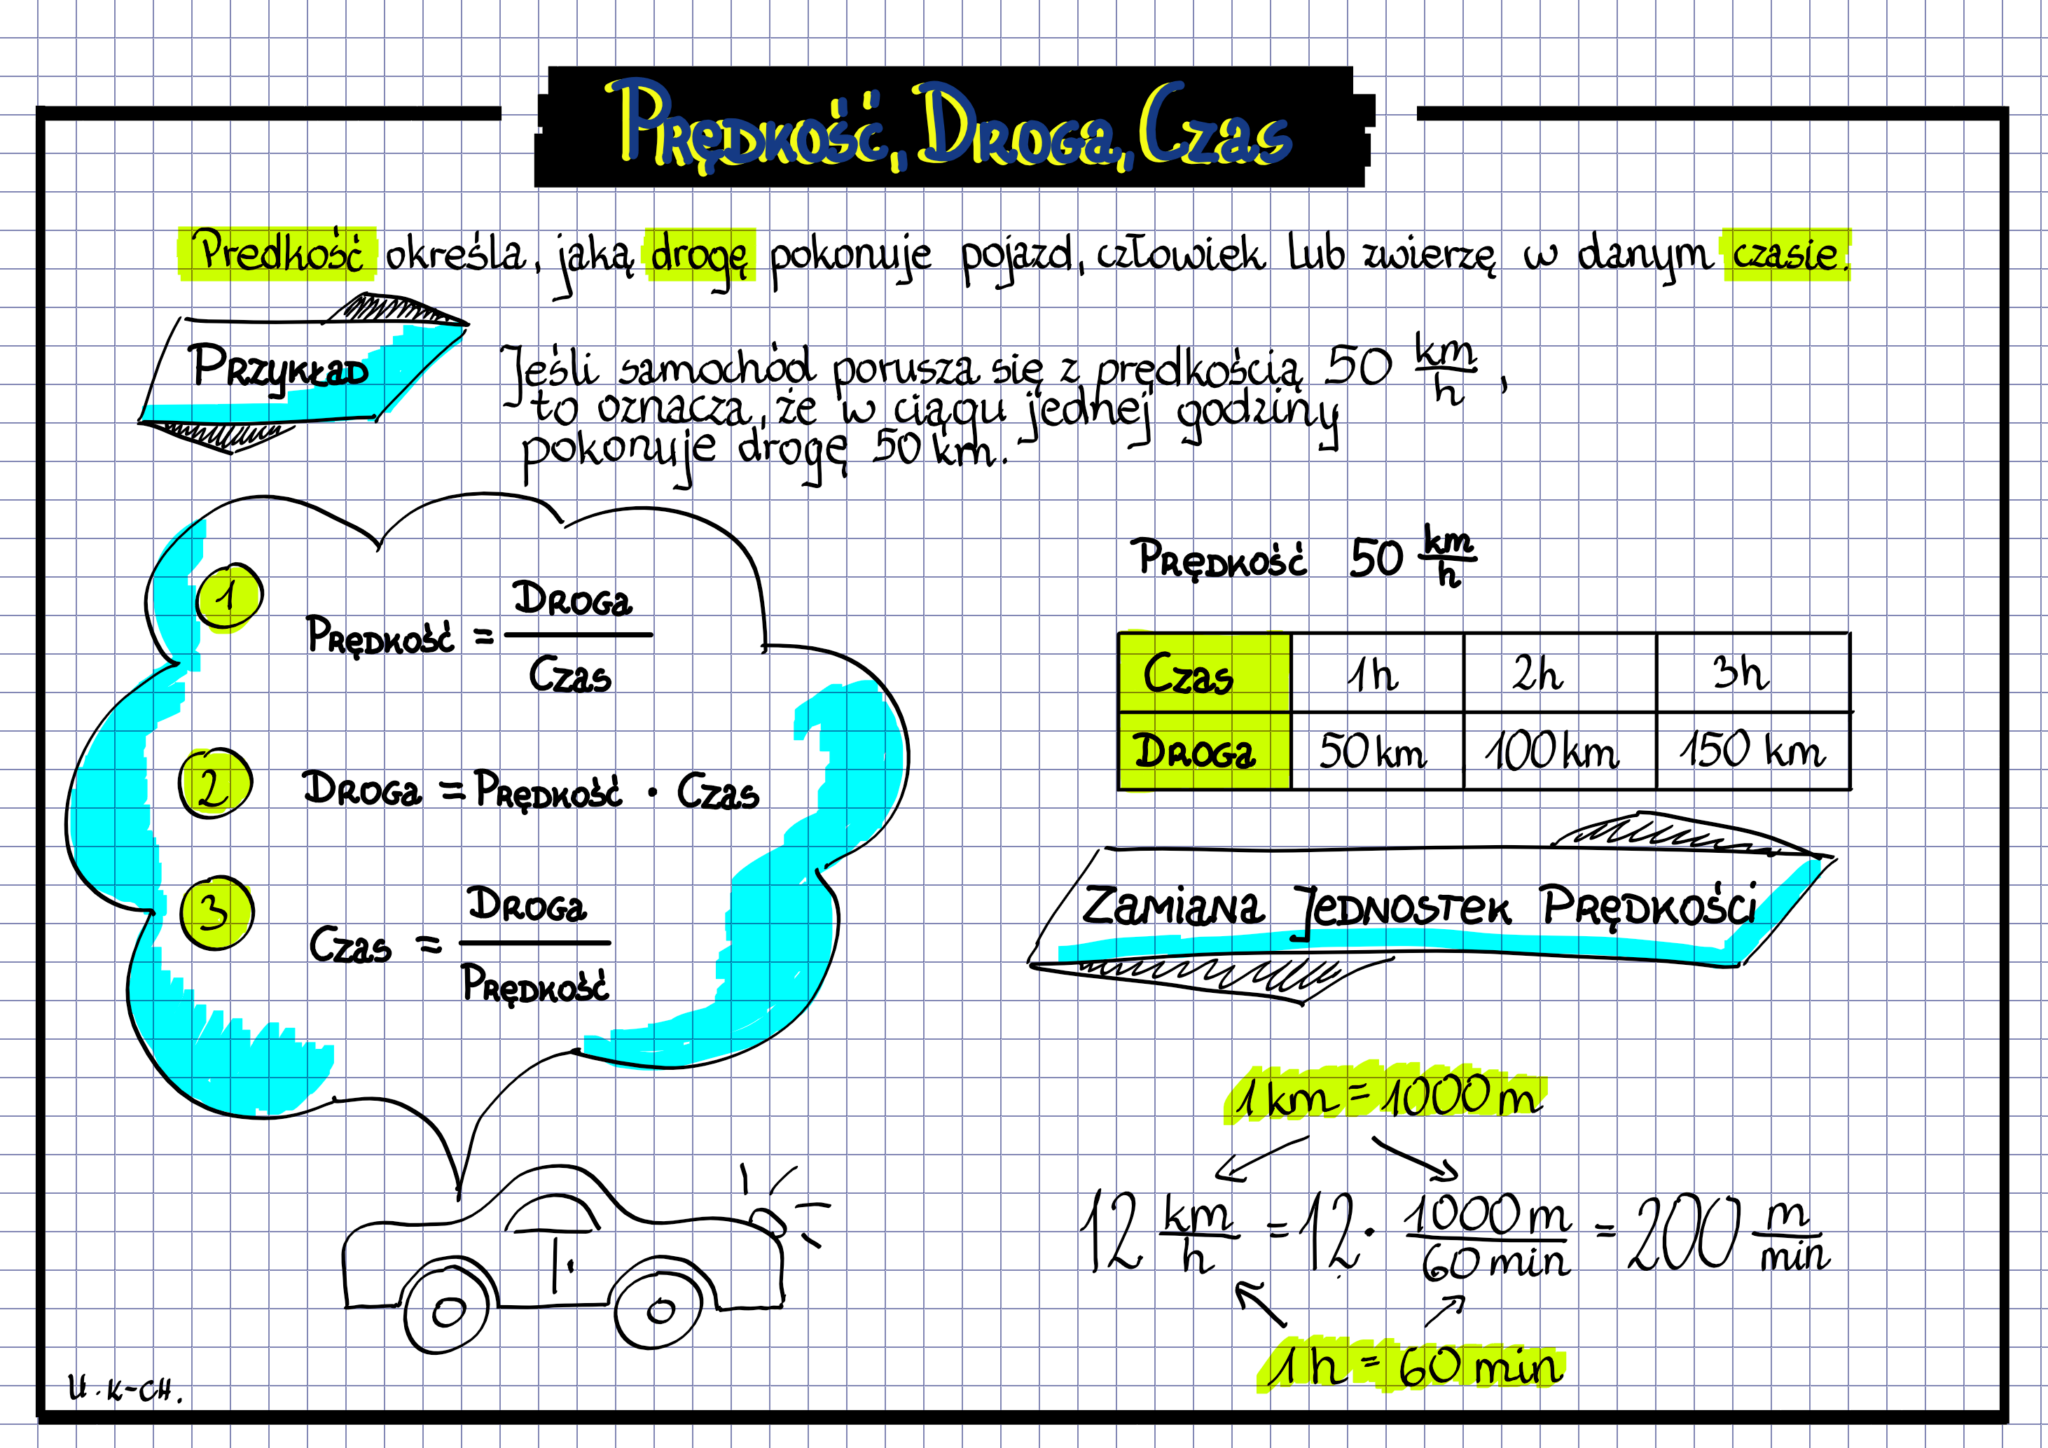 Prędkość, Droga, Czas
Predkość określa, jaką drogę pokonuje pojazd, człowiek lub zwierzę w danym czasie.
Przykład
Jeśli samochód porusza się z prędkością 50 km/h,
to oznacza, że w ciągu jednej godziny
pokonuje drogę 50 km.
1 Prędkość = Droga/Czas
2 Droga = Prędkość · Czas
3 Czas = Droga/Prędkość
Prędkość 50 km/h
Czas 1h 2h 3h
Droga 50 km 100 km 150 km
Zamiana Jednostek Prędkości
1 km = 1000 m
12 km/h = 12 · 1000 m/60 min = 200 m/min
1 h = 60 min
U.K-CH.